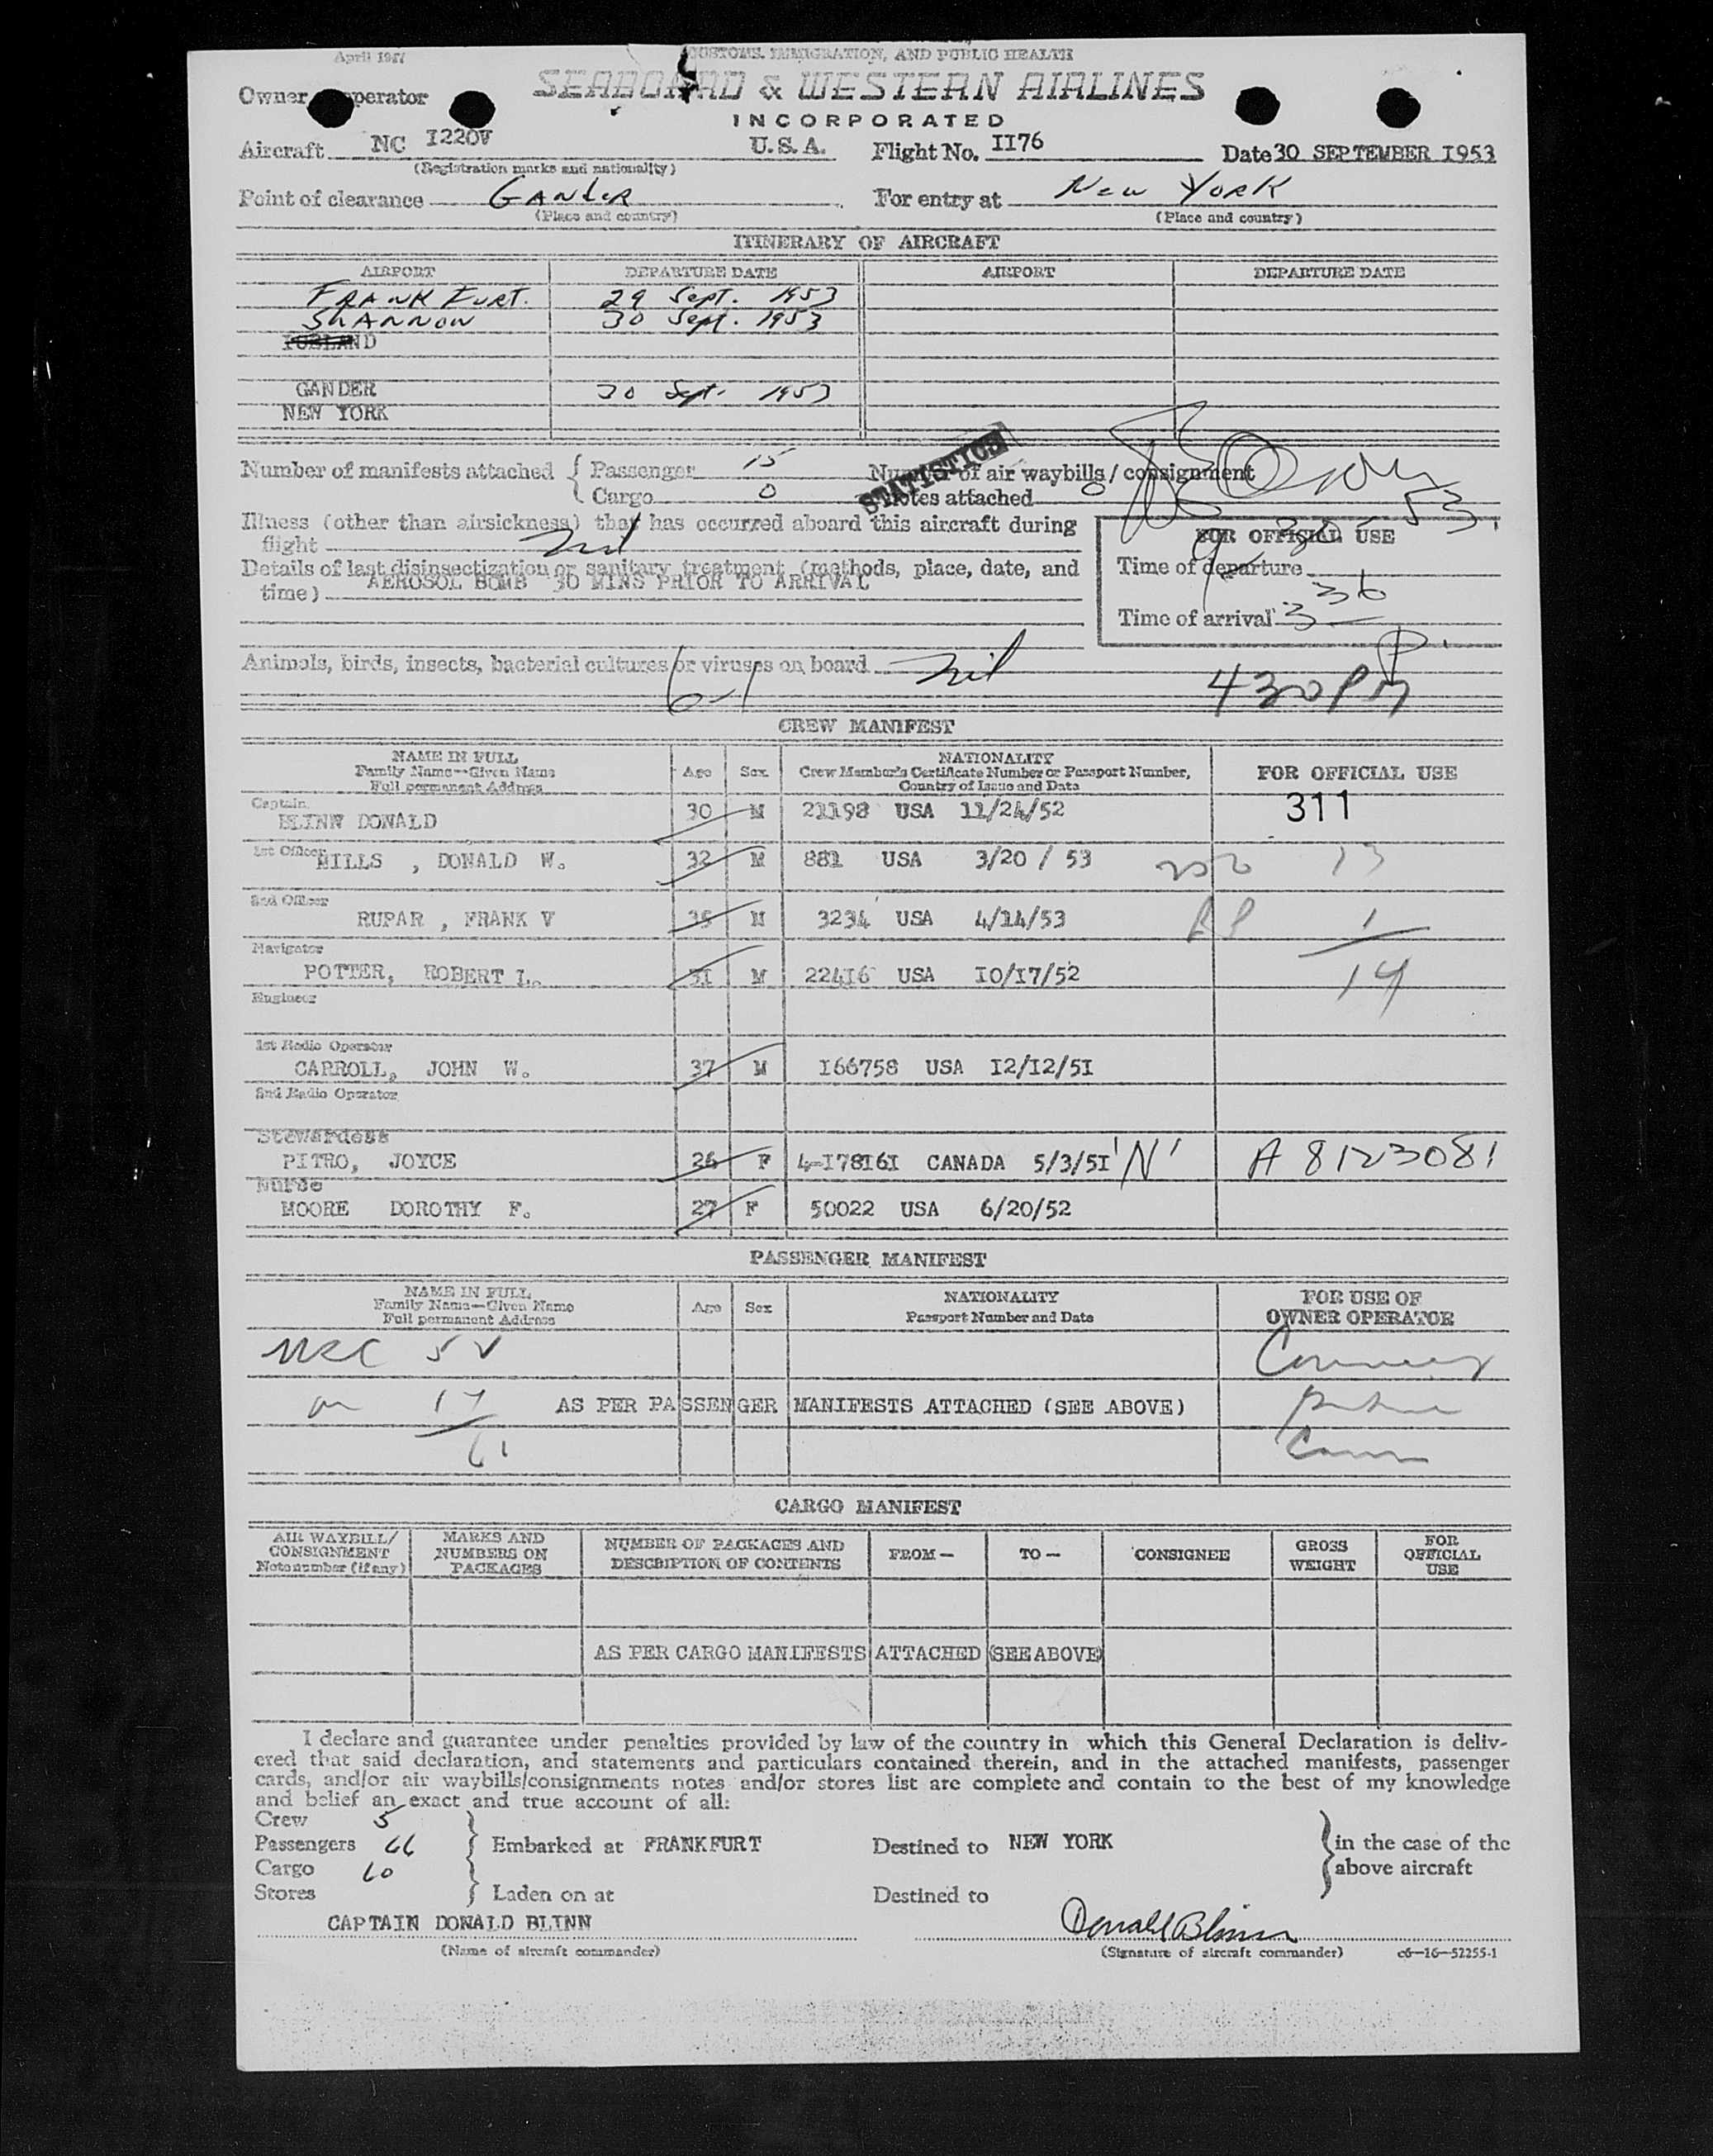 April 1947
CUSTOMS, IMMIGRATION, AND PUBLIC HEALTH
SEABOARD & WESTERN AIRLINES
Owner operator
INCORPORATED
Aircraft NC I220V U.S.A. Flight No. II76 Date 30 SEPTEMBER I953
(Registration marks and nationality)
Point of clearance GANDER For entry at New York
(Place and country) (Place and country)
ITINERARY OF AIRCRAFT
AIRPORT DEPARTURE DATE AIRPORT DEPARTURE DATE
FRANKFURT. 29 Sept. 1953
SHANNON 30 Sept. 1953
GANDER 30 Sept. 1953
NEW YORK
STATISTICS
Number of manifests attached { Passenger 15 Number of air waybills / consignment
Cargo 0 notes attached 0
Illness (other than airsickness) that has occurred aboard this aircraft during
flight Nil
FOR OFFICIAL USE
Details of last disinsectization or sanitary treatment (methods, place, date, and
time) AEROSOL BOMB 30 MINS PRIOR TO ARRIVAL
Time of departure
Time of arrival 336 P.
Animals, birds, insects, bacterial cultures or viruses on board Nil
6-1
430 PM
CREW MANIFEST
NAME IN FULL
Family Name—Given Name
Full permanent Address
Age Sex
NATIONALITY
Crew Member's Certificate Number or Passport Number,
Country of Issue and Date
FOR OFFICIAL USE
Captain
BLINN DONALD 30 M 21198 USA 11/24/52 311
1st Officer
MILLS , DONALD W. 32 M 881 USA 3/20 / 53 13
2nd Officer
RUPAR , FRANK V 35 M 3234 USA 4/14/53 1
Navigator
POTTER, ROBERT L. 3I M 22416 USA I0/I7/52 14
Engineer
1st Radio Operator
CARROLL, JOHN W. 37 M I66758 USA I2/I2/5I
2nd Radio Operator
Stewardess
PITRO, JOYCE 26 F 4-I78I6I CANADA 5/3/5I 'N' A 8123081
Nurse
MOORE DOROTHY F. 27 F 50022 USA 6/20/52
PASSENGER MANIFEST
NAME IN FULL
Family Name—Given Name
Full permanent Address
Age Sex
NATIONALITY
Passport Number and Date
FOR USE OF
OWNER OPERATOR
17 AS PER PASSENGER MANIFESTS ATTACHED (SEE ABOVE)
61
CARGO MANIFEST
AIR WAYBILL/
CONSIGNMENT
Note number (if any)
MARKS AND
NUMBERS ON
PACKAGES
NUMBER OF PACKAGES AND
DESCRIPTION OF CONTENTS
FROM— TO— CONSIGNEE
GROSS
WEIGHT
FOR
OFFICIAL
USE
AS PER CARGO MANIFESTS ATTACHED (SEE ABOVE)
I declare and guarantee under penalties provided by law of the country in which this General Declaration is deliv-
ered that said declaration, and statements and particulars contained therein, and in the attached manifests, passenger
cards, and/or air waybills/consignments notes and/or stores list are complete and contain to the best of my knowledge
and belief an exact and true account of all:
Crew 5
Passengers 66 Embarked at FRANKFURT Destined to NEW YORK in the case of the
Cargo above aircraft
Stores Laden on at Destined to
CAPTAIN DONALD BLINN Donald Blinn
(Name of aircraft commander) (Signature of aircraft commander) c6—16—52255-1